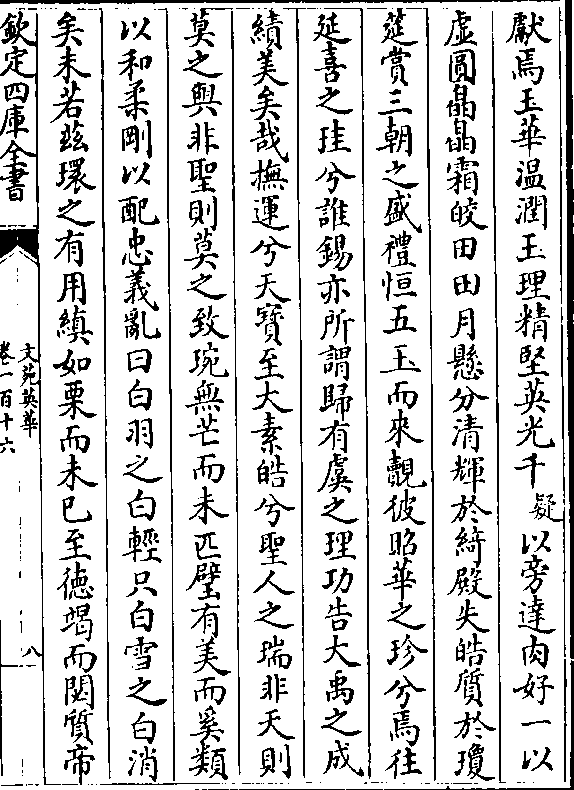 獻焉玉華温潤玉理精堅英光千疑以旁達肉好一以
虚圓晶晶霜皎田田月懸分清輝於綺殿失皓質於瓊
筵賞三朝之盛禮恒五玉而來覿彼昭華之珍兮焉往
延喜之珪兮誰錫亦所謂歸有虞之理功告大禹之成
績美矣哉撫運兮天寳至大素皓兮聖人之瑞非天則
莫之與非聖則莫之致琬無芒而未匹璧有美而奚類
以和柔剛以配忠義亂曰白羽之白輕只白雪之白消
矣未若兹環之有用縝如栗而未已至徳竭而閟質帝
欽定四庫全書
文苑英華
卷一百十六
八